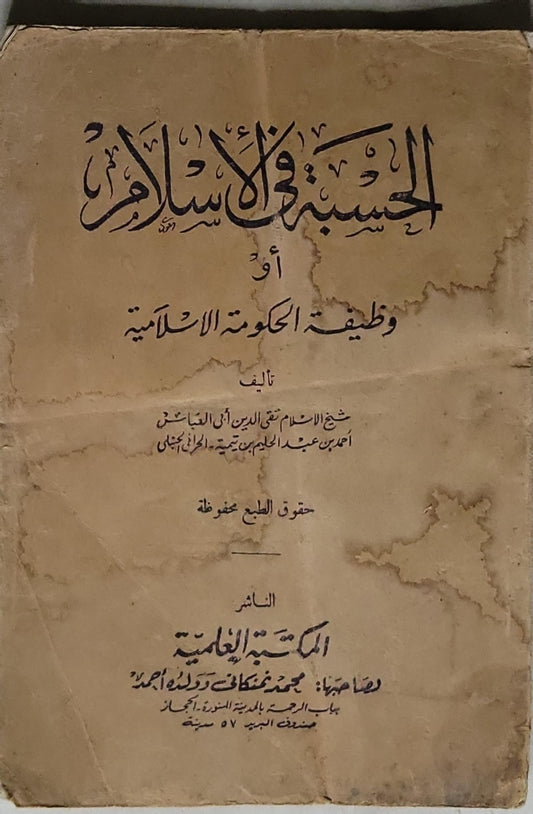 الحسبة في الإسلام
أو
وظيفة الحكومة الاسلامية
تأليف
شيخ الاسلام تقى الدين أبى العباس
أحمد بن عبد الحليم بن تيمية - الحرانى الحنبلى
حقوق الطبع محفوظة
الناشر
المكتبة العلمية
لصاحبها: محمد نمنكانى وولده أحمد
بباب الرحمة بالمدينة المنورة - الحجاز
صندوق البريد ٥٧ مدينة